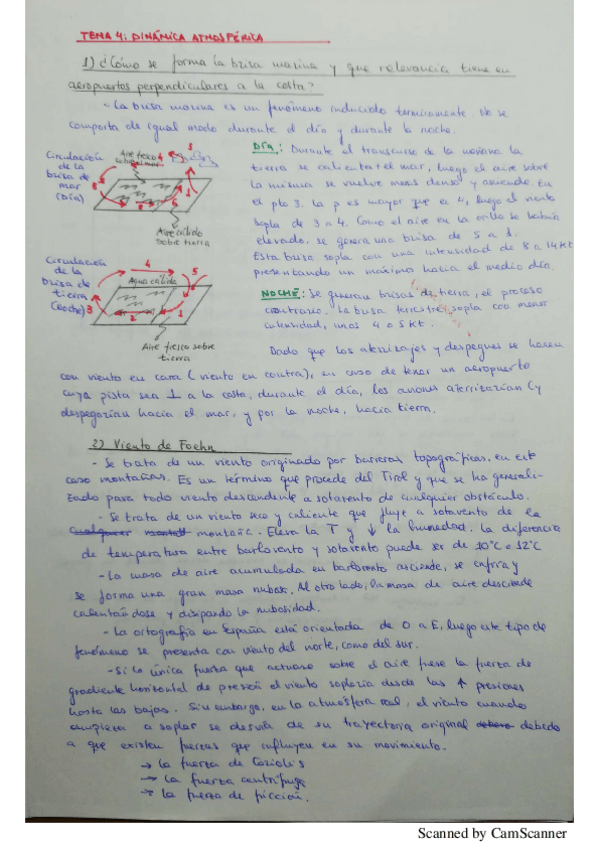 TEMA 4: DINÁMICA ATMOSFÉRICA
1) ¿Cómo se forma la brisa marina y que relevancia tiene en
aeropuertos perpendiculares a la costa?
- La brisa marina es un fenómeno inducido termicamente. No se
comporta de igual modo durante el día y durante la noche.
Circulación
de la
brisa de
mar
(Día)
Aire fresco
sobre mar
4
3
5
1
Aire cálido
sobre tierra
DÍA: Durante el transcurso de la mañana la
tierra se calienta + el mar, luego el aire sobre
la misma se vuelve menos denso y asciende. En
el pto 3. la p es mayor que en 4, luego el viento
sopla de 3 a 4. Como el aire en la orilla se había
elevado, se genera una brisa de 5 a 1.
Esta brisa sopla con una intensidad de 8 a 14 kt
presentando un máximo hacia el medio día.
Circulación
de la
brisa de
tierra
(noche)
4
Agua cálida
5
3
2
1
Aire fresco sobre
tierra
NOCHE: Se generan brisas de tierra, el proceso
contrario. La brisa terrestre sopla con menor
intensidad, unos 4 o 5 kt.
Dado que los aterrizajes y despegues se hacen
con viento en cara (viento en contra), en caso de tener un aeropuerto
cuya pista sea ⊥ a la costa, durante el día, los aviones aterrizarían (y
despegarían hacia el mar, y por la noche, hacia tierra.
2) Viento de Foehn
- Se trata de un viento originado por barreras topográficas, en este
caso montañas. Es un término que procede del Tirol y que se ha generali-
zado para todo viento descendente a sotavento de cualquier obstáculo.
- Se trata de un viento seco y caliente que fluye a sotavento de la
montaña. Eleva la T y ↓ la humedad. La diferencia
de temperatura entre barlovento y sotavento puede ser de 10°C o 12°C
- La masa de aire acumulada en barlovento asciende, se enfría y
se forma una gran masa nubosa. Al otro lado, la masa de aire desciende
calentándose y disipando la nubosidad.
- La ortografía en España está orientada de O a E, luego este tipo de
fenómeno se presenta con viento del norte, como del sur.
- Si la única fuerza que actuase sobre el aire fuese la fuerza de
gradiente horizontal de presión el viento soplaría desde las ↑ presiones
hasta las bajas. Sin embargo, en la atmósfera real, el viento cuando
empieza a soplar se desvía de su trayectoria original debido
a que existen fuerzas que influyen en su movimiento.
→ La fuerza de Coriolis
→ La fuerza centrífuga
→ La fuerza de fricción.
Scanned by CamScanner